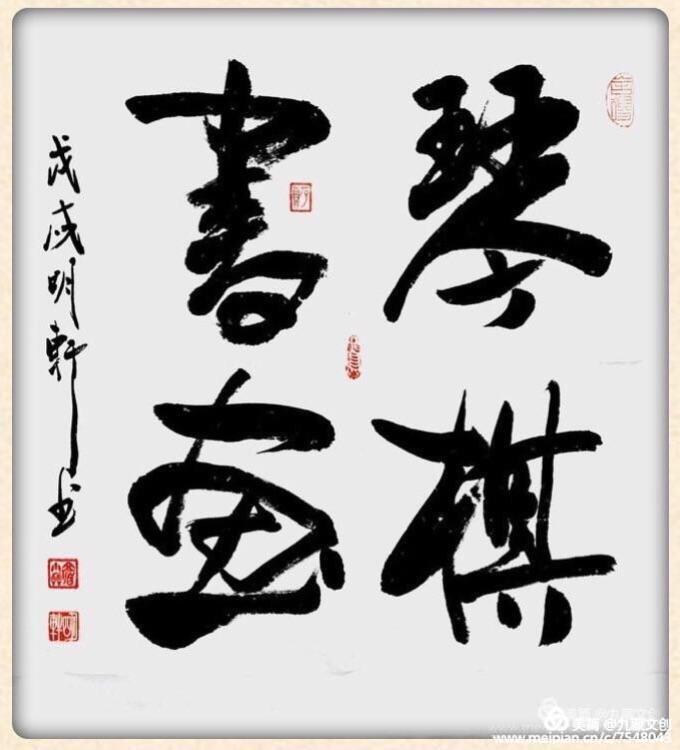 琴棋
書畫
戊戌明軒书
美篇 @九瀛文创
www.meipian.cn/c/7548043